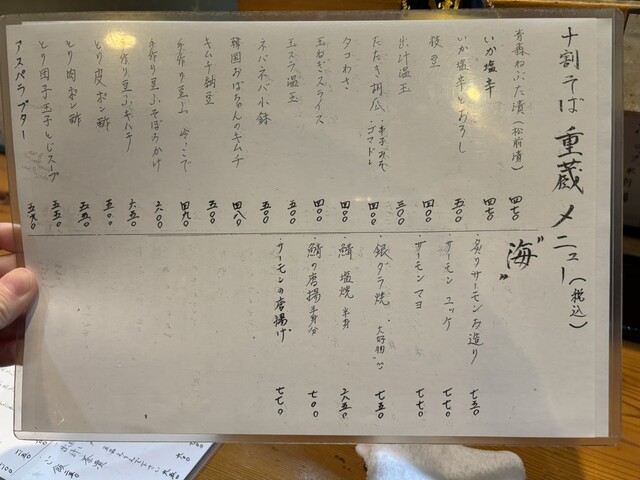 十割そば 重蔵 メニュー(税込)
青森ねぶた漬(松前漬) 四七〇
いか塩辛 四七〇
いか塩辛とおろし 五〇〇
枝豆 四〇〇
出汁温玉 三〇〇
たたき胡瓜 ・辛子みそ ・ゴマドレ 四〇〇
タコわさ 四〇〇
玉ねぎスライス 四〇〇
玉スラ温玉 五〇〇
ネバネバ小鉢 五〇〇
韓国おばちゃんのキムチ 四八〇
キムチ納豆 五〇〇
手作り豆ふ 冷っこで 四九〇
手作り豆ふそぼろかけ 六〇〇
手作り豆ふキムチ 六五〇
とり皮ポン酢 五〇〇
とり肉ポン酢 五五〇
とり団子玉子とじスープ 五五〇
アスパラバター 五五〇
"海"
・炙りサーモンお造り 七五〇
・サーモンユッケ 七七〇
・サーモンマヨ 七七〇
・銀ダラ焼 ・大好物 七五〇
・鯖塩焼 半身 六五〇
・鯖の唐揚 半身分 七〇〇
・サーモンの唐揚げ 七七〇